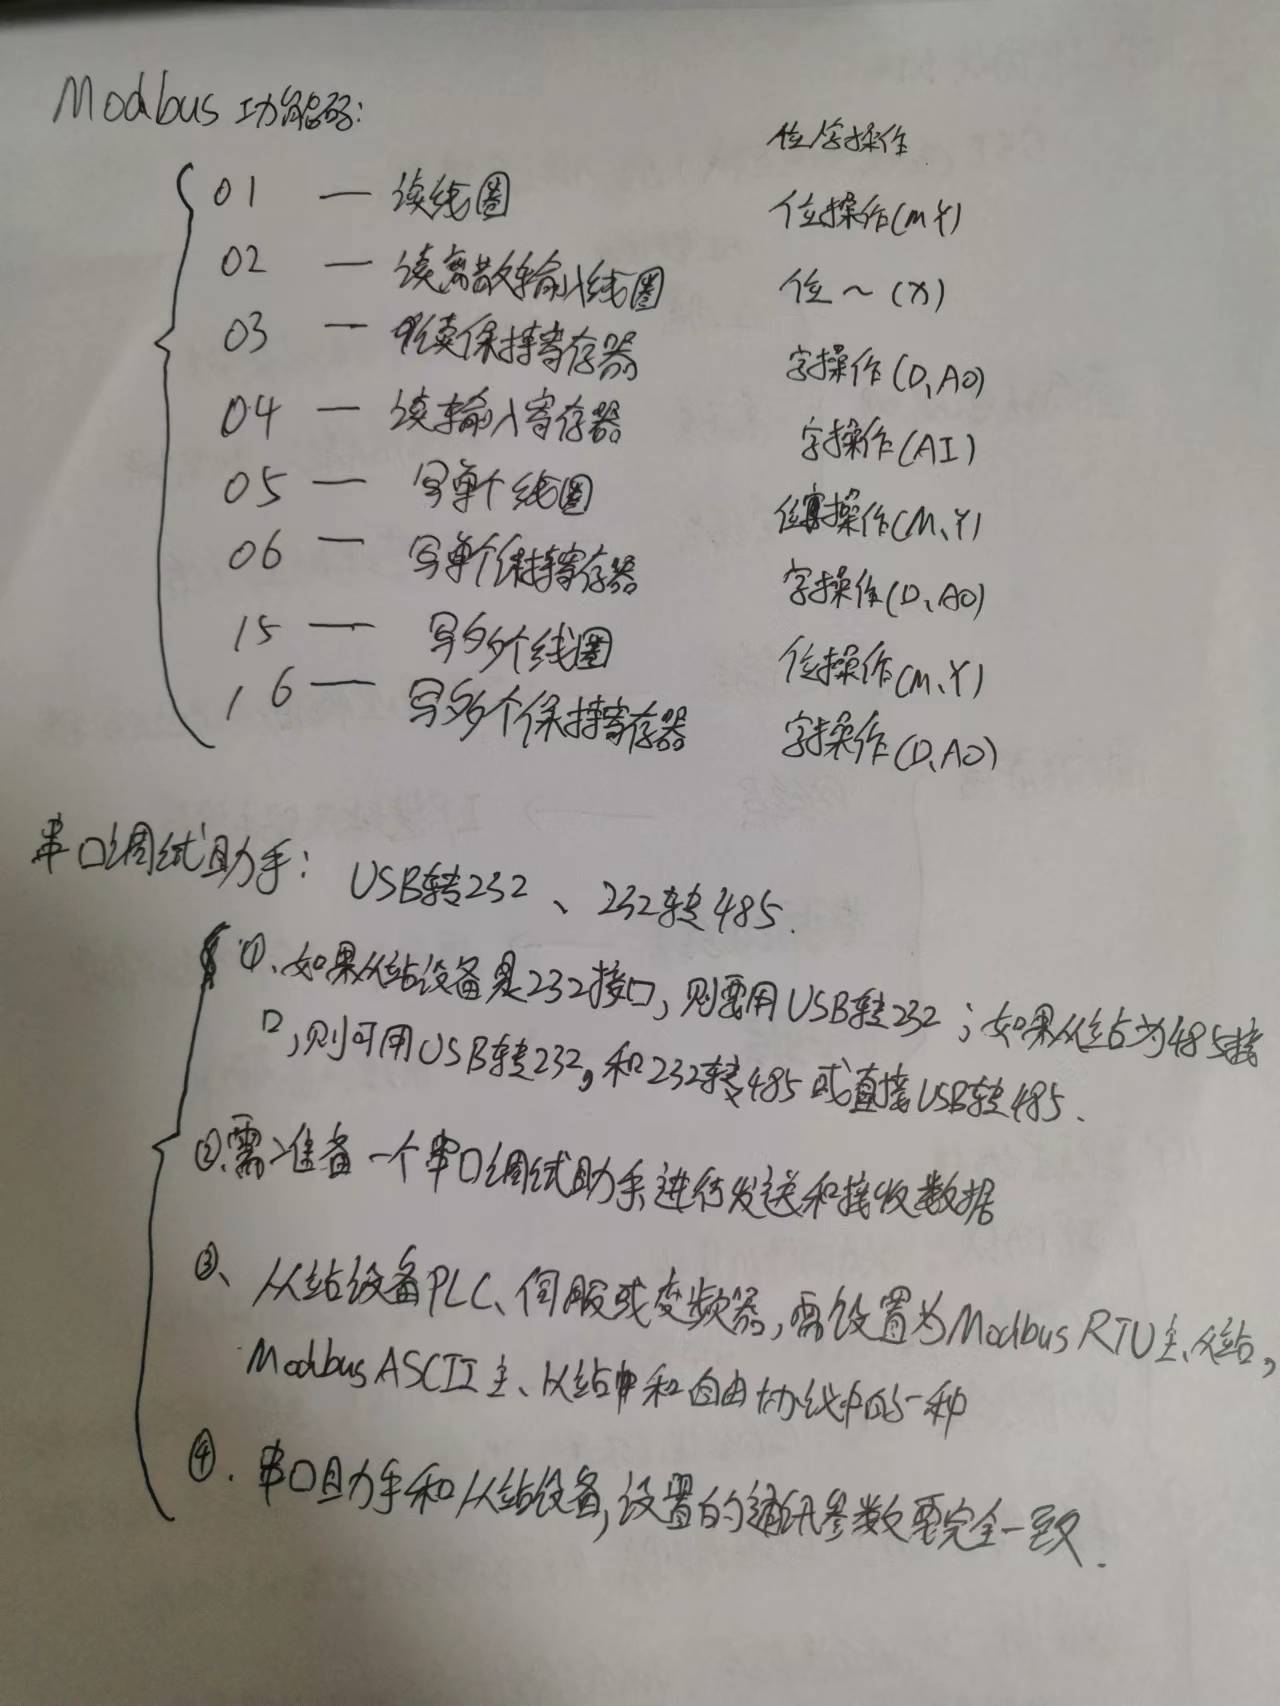 Modbus 功能码:
位/字操作
01 — 读线圈 位操作(M Y)
02 — 读离散输入线圈 位~(X)
03 — 读保持寄存器 字操作(D、AO)
04 — 读输入寄存器 字操作(AI)
05 — 写单个线圈 位操作(M、Y)
06 — 写单个保持寄存器 字操作(D、AO)
15 — 写多个线圈 位操作(M、Y)
16 — 写多个保持寄存器 字操作(D、AO)
串口调试助手: USB转232 、 232转485.
①、如果从站设备是232接口,则要用USB转232;如果从站为485接
口,则可用USB转232,和232转485或直接USB转485、
②需准备一个串口调试助手,进行发送和接收数据
③、从站设备PLC、伺服或变频器,需设置为Modbus RTU主、从站,
Modbus ASCII主、从站和自由协议中的一种
④. 串口助手和从站设备,设置的通讯参数要完全一致.